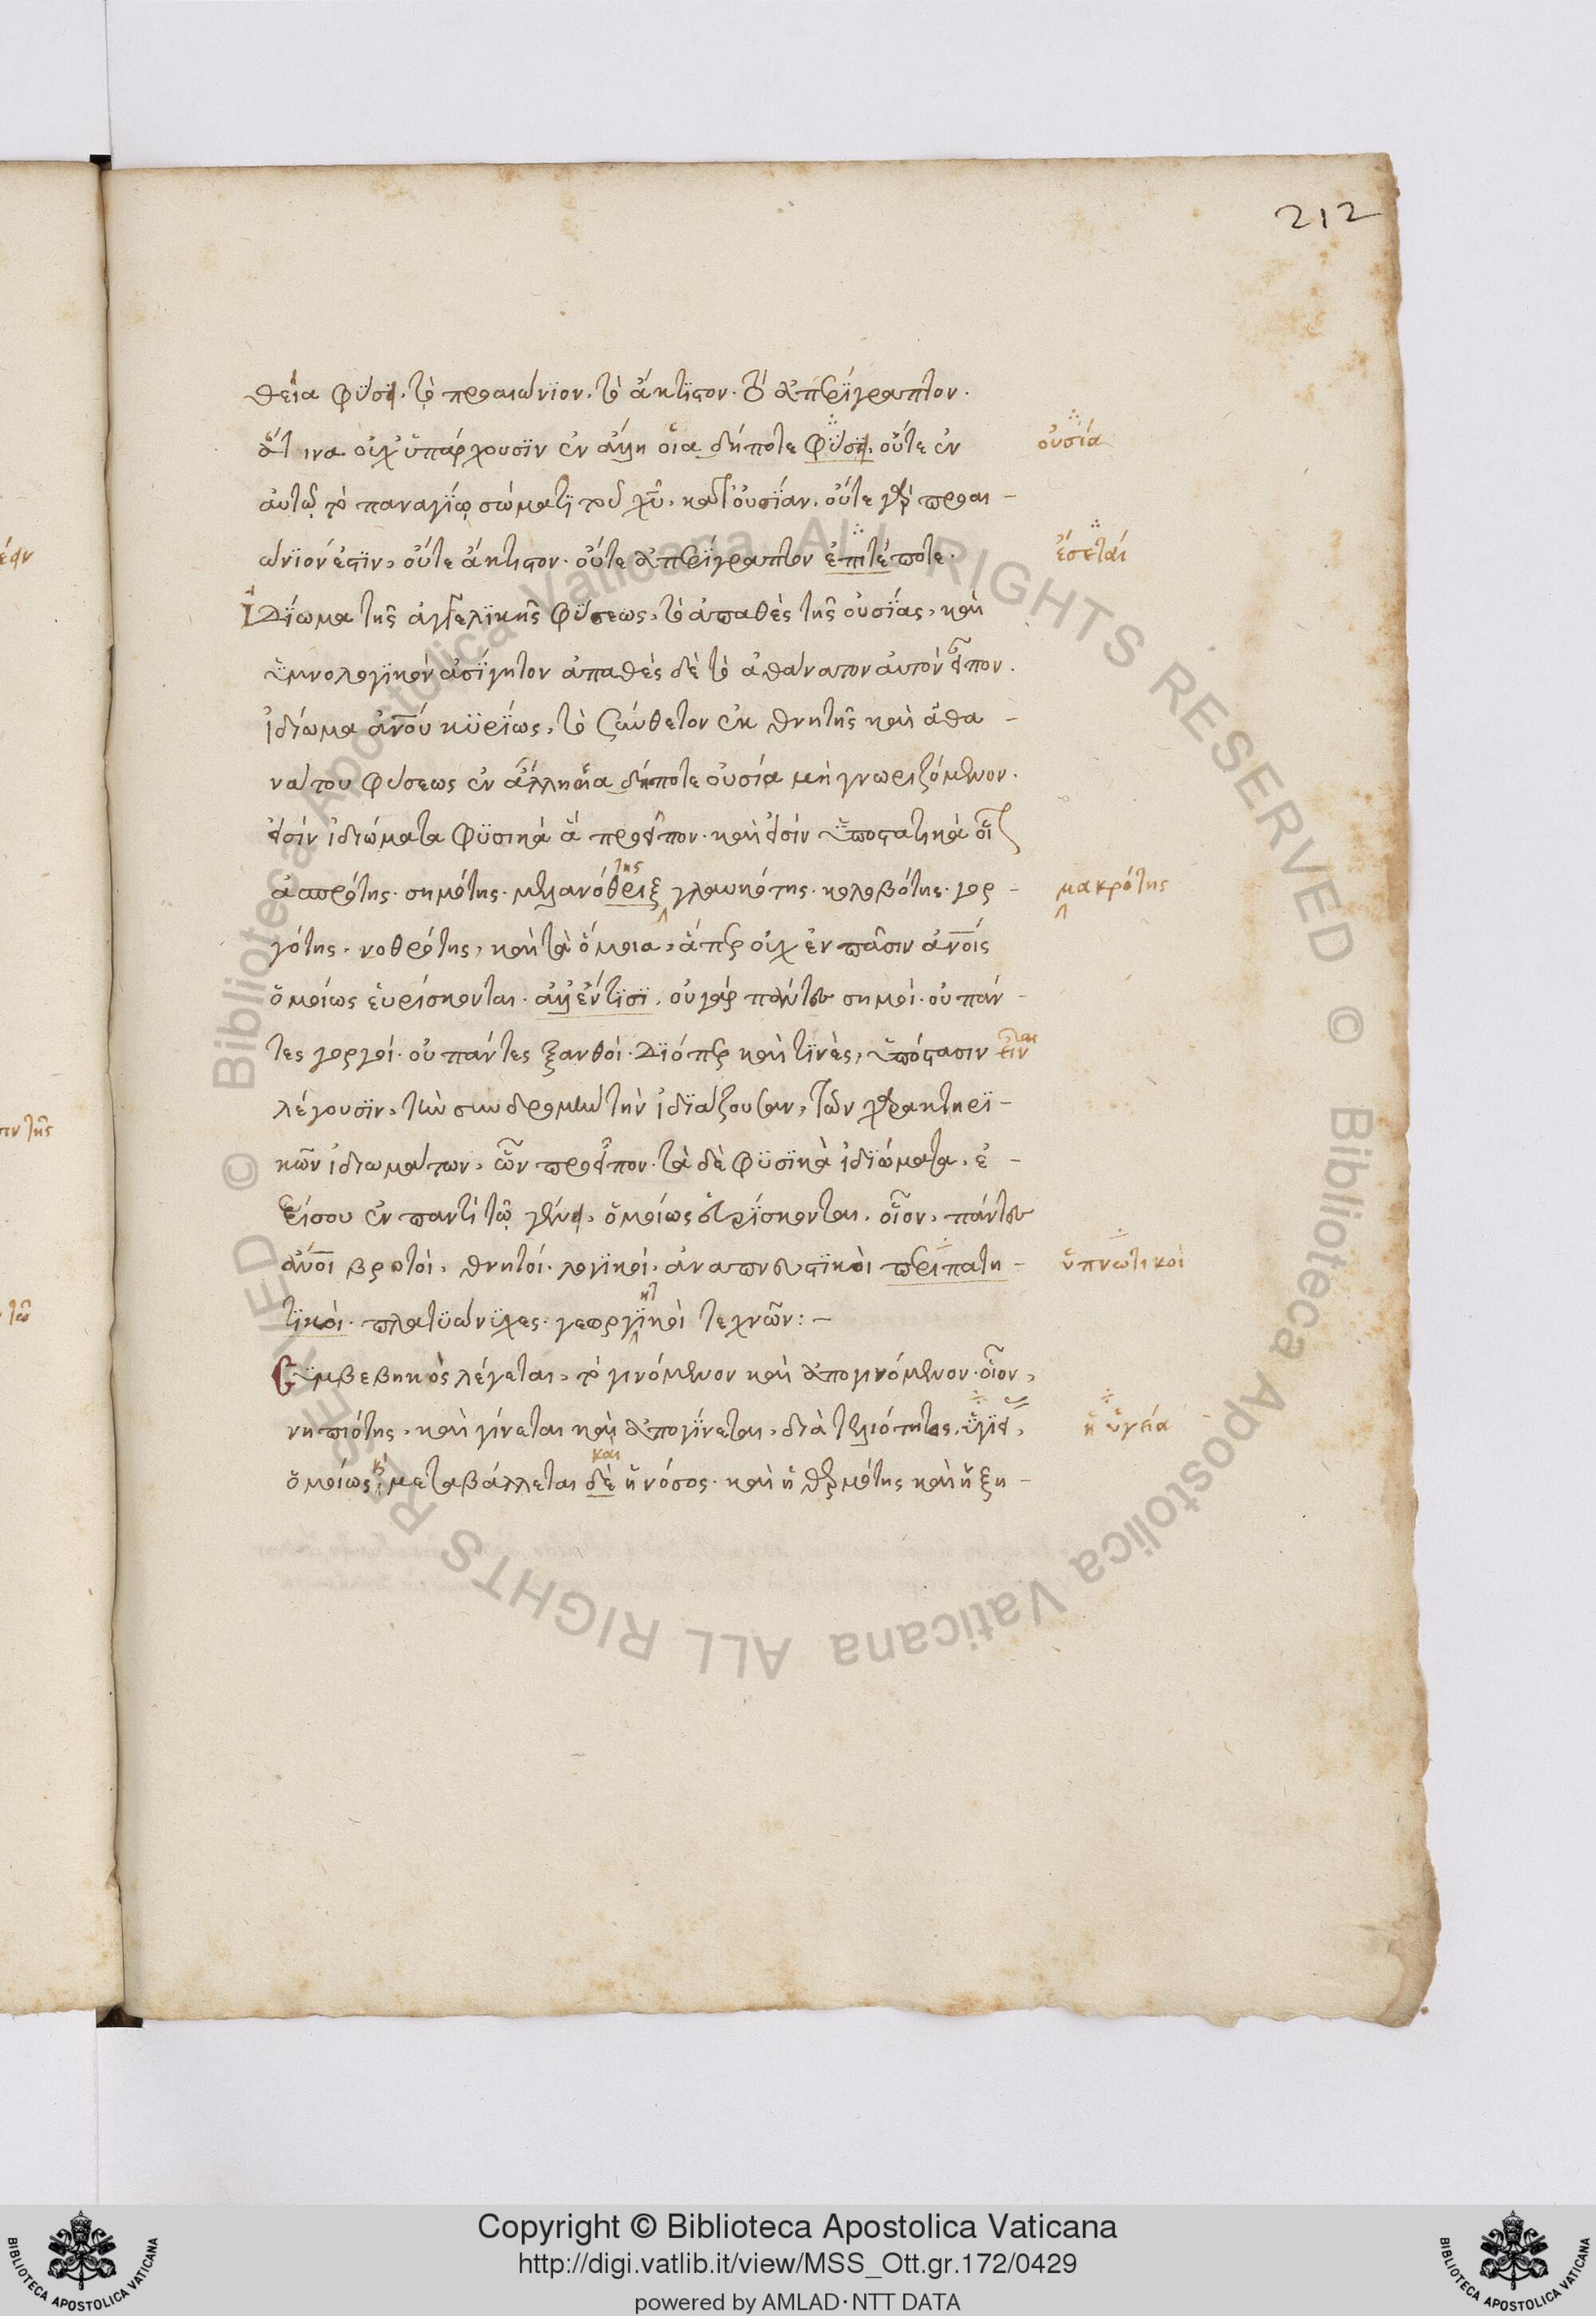 212
θεία φύσει. τὸ προαιώνιον. τὸ ἄκτιστον. τὸ ἀπερίγραπτον.
ἅτινα οὐχ ὑπάρχουσιν ἐν ἄλλη οἵα δήποτε φύσει. οὔτε ἐν
οὐσία
αὐτῷ τῷ παναγίῳ σώματι τοῦ χυ, κατ' οὐσίαν. οὔτε γὰρ προαι-
ώνιόν ἐστιν, οὔτε ἄκτιστον. οὔτε ἀπερίγραπτον ἐπιτέποτε.
ἔσεται
Ἰδίωμα τῆς ἀγγελικῆς φύσεως, τὸ ἀπαθὲς τῆς οὐσίας, καὶ
ὑμνολογικὸν ἀσίγητον ἀπαθὲς δὲ τὸ ἀθάνατον αὐτὸν εἶπον.
ἰδίωμα ἀνου κυρίως, τὸ σύνθετον ἐκ θνητῆς καὶ ἀθα-
νάτου φύσεως ἐν ἄλλη οἵα δήποτε οὐσία μὴ γνωριζόμενον.
εἰσὶν ἰδιώματα φυσικὰ ἃ προεῖπον. καὶ εἰσὶν ὑποστατικὰ οἷ
ἀσπρότης. σημότης. μελανόθριξ της γλαυκότης. κολοβότης. γορ-
μακρότης
γότης. νοθρότης, καὶ τὰ ὅμοια, ἅπερ οὐχ ἐν πᾶσιν ἀνοις
ὁμοίως εὑρίσκονται. ἀλλ' ἔν τισι. οὐ γὰρ πάντες σημοί. οὐ πάν-
τες γοργοί. οὐ πάντες ξανθοί. διόπερ καὶ τινὲς, ὑπόστασιν
λέγουσιν, τὴν συνδρομὴν τὴν ἰδιάζουσαν, τῶν χαρακτηρι-
κῶν ἰδιωμάτων, ὧν προεῖπον. τὰ δὲ φυσικὰ ἰδιώματα, ἐ-
ξίσου ἐν παντὶ τῷ γένει, ὁμοίως εὑρίσκονται. οἷον, πάντες
ἀνοι βροτοὶ, θνητοί. λογικοί. ἀναπνευστικοὶ περιπατη-
ὑπνωτικοὶ
τικοί. πλατυώνυχες. γεωργικοὶ τεχνῶν:-
Συμβεβηκὸς λέγεται, τὸ γινόμενον καὶ ἀπογινόμενον. οἷον,
νηπιότης, καὶ γίνεται καὶ ἀπογίνεται, διὰ τελιότητος. ὑγιει,
ἡ ὑγεία
ὁμοίως μεταβάλλεται δὲ και ἡ νόσος. καὶ ἡ θερμότης καὶ ἡ ξη-
Copyright © Biblioteca Apostolica Vaticana
http://digi.vatlib.it/view/MSS_Ott.gr.172/0429
powered by AMLAD·NTT DATA
BIBLIOTECA APOSTOLICA VATICANA
BIBLIOTECA APOSTOLICA VATICANA
© Biblioteca Apostolica Vaticana ALL RIGHTS RESERVED © Biblioteca Apostolica Vaticana ALL RIGHTS RESERVED